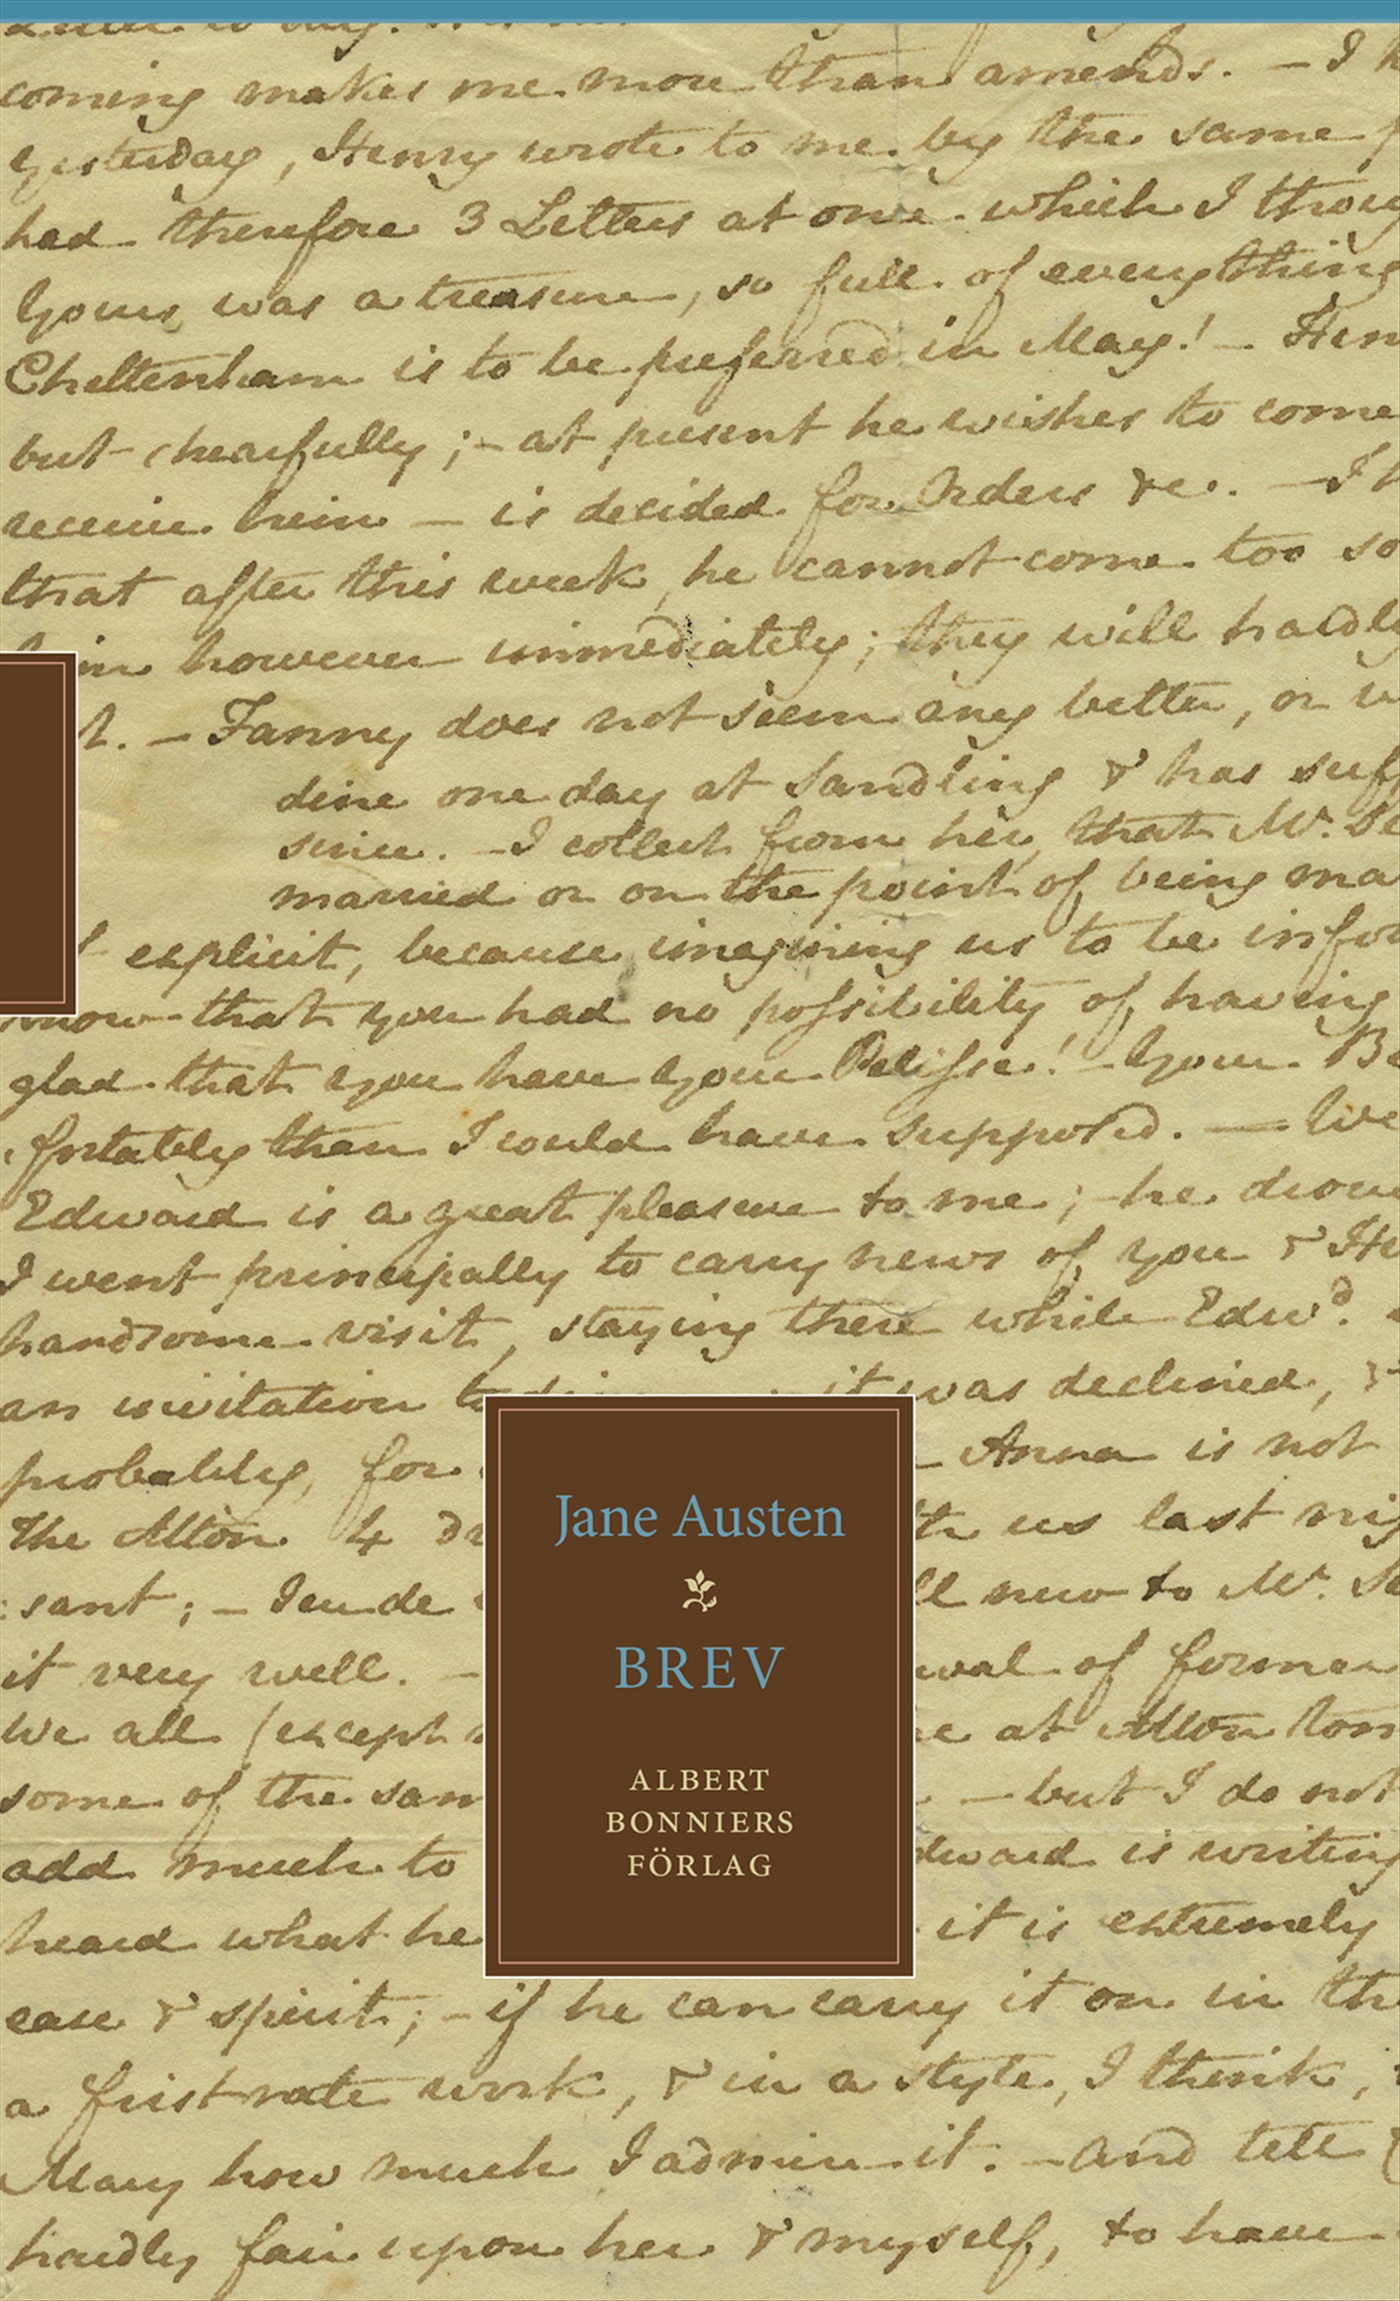 coming makes me more than amends. — I
yesterday, Henry wrote to me by the same
had therefore 3 Letters at once which I thou
Yours was a treasure, so full of everything
Cheltenham is to be preferred in May! — Hen
but chearfully; — at present he wishes to come
receive him — is decided for Orders &c. — I h
that after this week he cannot come too so
him however immediately; they will hardly
t. — Fanny does not seem any better, or
dine one day at Sandling & has suf
since. — I collect from her that Mr. De
married or on the point of being ma
t explicit, because imagining us to be infor
know that you had no possibility of having
glad that you have your Pelisse! — Your Be
fortably than I could have supposed. — We
Edward is a great pleasure to me; — he drove
I went principally to carry news of you & He
handsome visit, staying there while Edwd.
an invitation to it was declined, &
probably, for — Anna is not
the Alton 4 dr th us last nig
:sant; — Jeu de ll new to Mr.
it very well. — wal of former
We all (except e at Alton
some of the sam — but I do not
add much to dward is writing
heard what he it is extremely
ease & spirit; — if he can carry it on in th
a firstrate work, & in a style, I think,
Mary how much I admire it. — And tell
hardly fair upon her & myself, to have
Jane Austen
BREV
ALBERT
BONNIERS
FÖRLAG